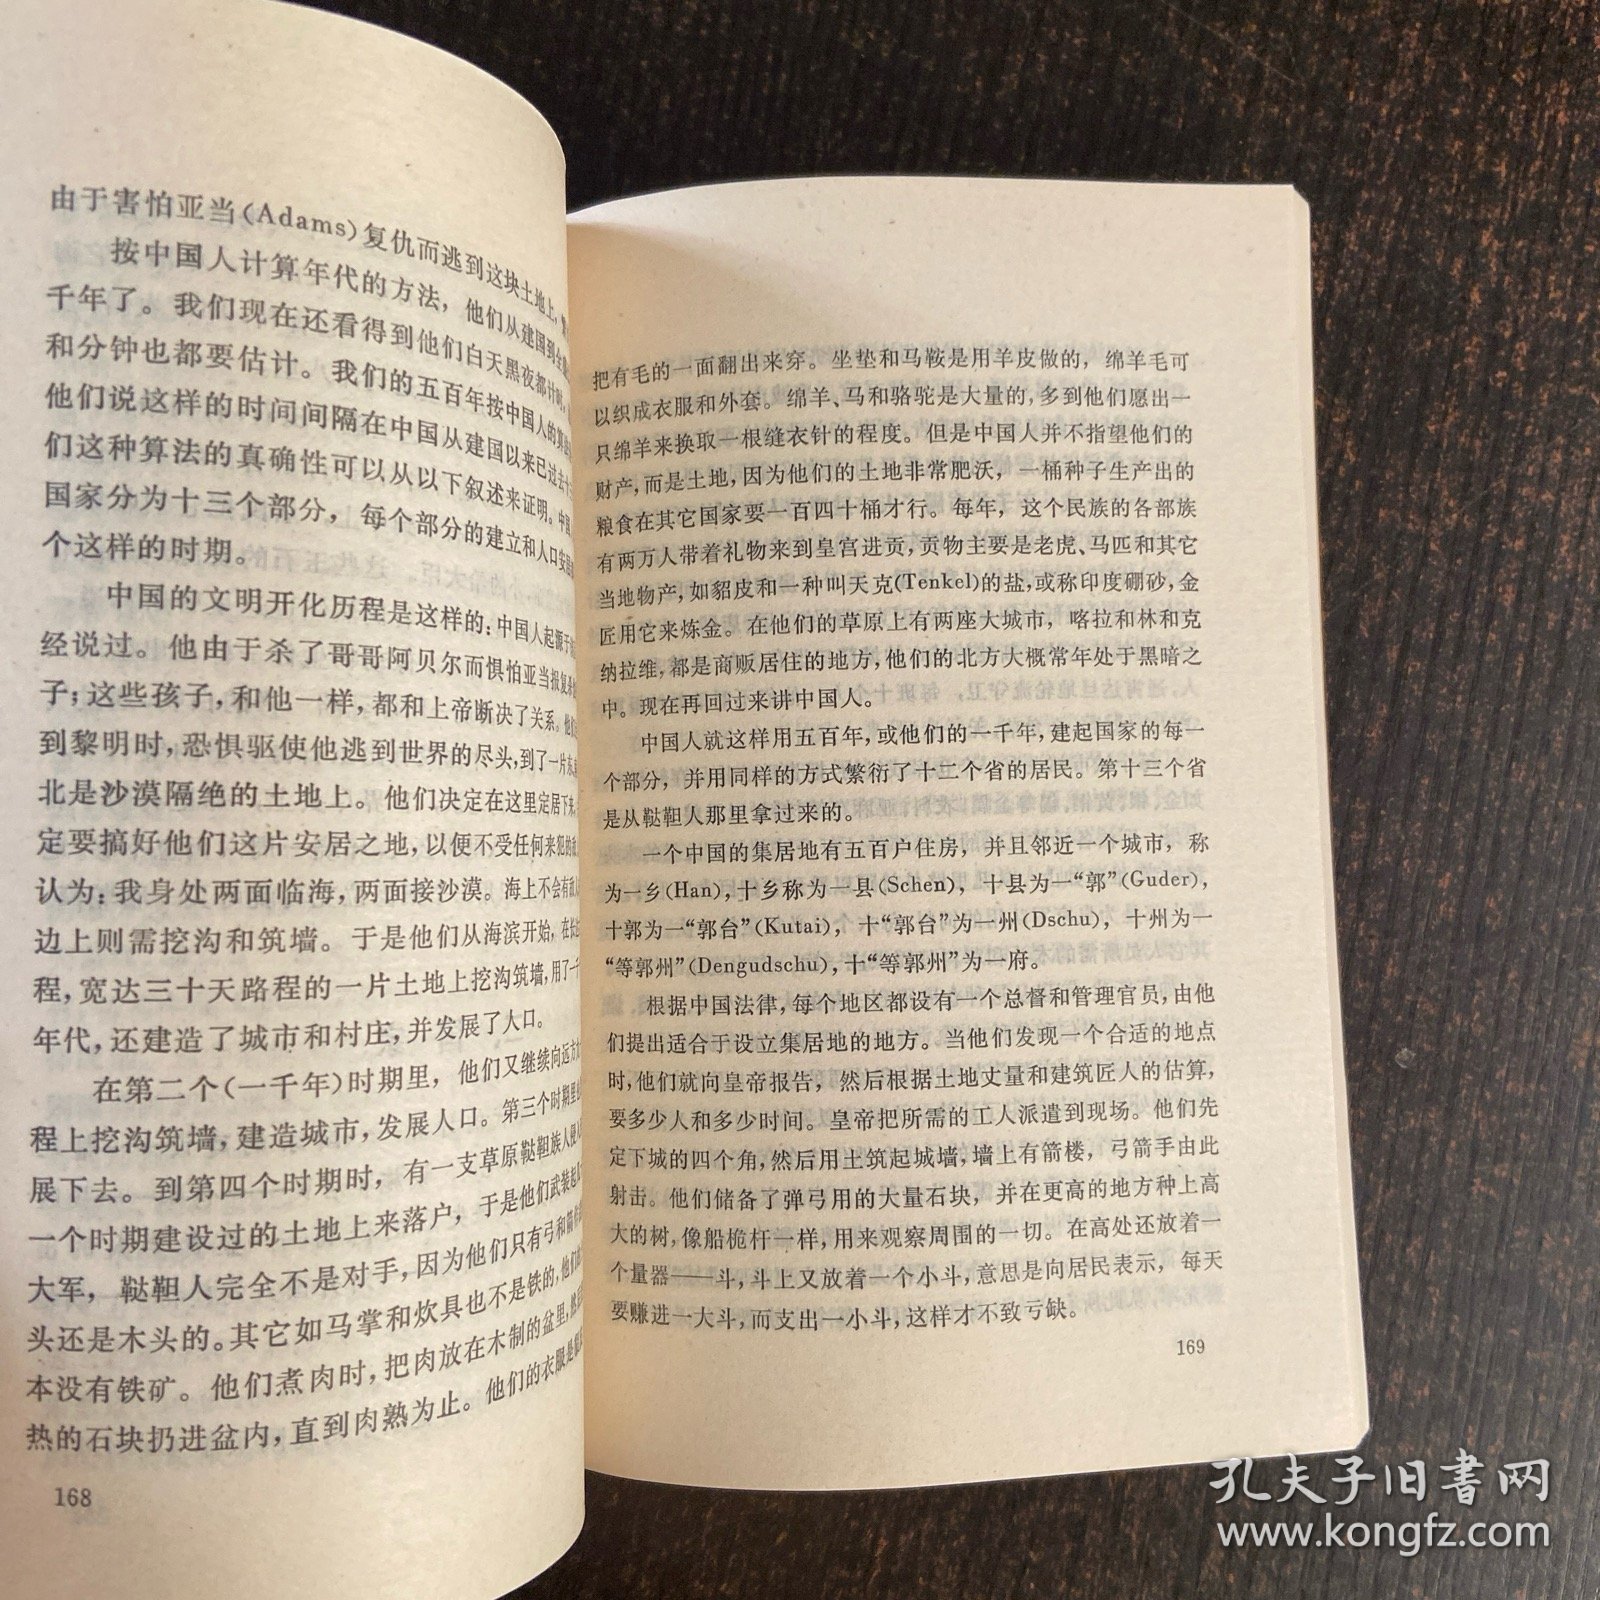 由于害怕亚当(Adams)复仇而逃到这块土地上，
按中国人计算年代的方法，他们从建国到
千年了。我们现在还看得到他们白天黑夜都计时，
和分钟也都要估计。我们的五百年按中国人的
他们说这样的时间间隔在中国从建国以来已过去十
们这种算法的真确性可以从以下叙述来证明。中国
国家分为十三个部分，每个部分的建立和人口安
个这样的时期。
中国的文明开化历程是这样的：中国人起源于
经说过。他由于杀了哥哥阿贝尔而惧怕亚当报复
子；这些孩子，和他一样，都和上帝断决了关系。他
到黎明时，恐惧驱使他逃到世界的尽头，到了一片东、
北是沙漠隔绝的土地上。他们决定在这里定居下来，
定要搞好他们这片安居之地，以便不受任何来犯的
认为：我身处两面临海，两面接沙漠。海上不会有
边上则需挖沟和筑墙。于是他们从海滨开始，在长
程，宽达三十天路程的一片土地上挖沟筑墙，用了一
年代，还建造了城市和村庄，并发展了人口。
在第二个(一千年)时期里，他们又继续向远方
程上挖沟筑墙，建造城市，发展人口。第三个时期里
展下去。到第四个时期时，有一支草原鞑靼族人侵
一个时期建设过的土地上来落户，于是他们武装起
大军，鞑靼人完全不是对手，因为他们只有弓和箭
头还是木头的。其它如马掌和炊具也不是铁的，他们
本没有铁矿。他们煮肉时，把肉放在木制的盆里，然后
热的石块扔进盆内，直到肉熟为止。他们的衣服是
168
把有毛的一面翻出来穿。坐垫和马鞍是用羊皮做的，绵羊毛可
以织成衣服和外套。绵羊、马和骆驼是大量的，多到他们愿出一
只绵羊来换取一根缝衣针的程度。但是中国人并不指望他们的
财产，而是土地，因为他们的土地非常肥沃，一桶种子生产出的
粮食在其它国家要一百四十桶才行。每年，这个民族的各部族
有两万人带着礼物来到皇宫进贡，贡物主要是老虎、马匹和其它
当地物产，如貂皮和一种叫天克(Tenkel)的盐，或称印度硼砂，金
匠用它来炼金。在他们的草原上有两座大城市，喀拉和林和克
纳拉维，都是商贩居住的地方，他们的北方大概常年处于黑暗之
中。现在再回过来讲中国人。
中国人就这样用五百年，或他们的一千年，建起国家的每一
个部分，并用同样的方式繁衍了十二个省的居民。第十三个省
是从鞑靼人那里拿过来的。
一个中国的集居地有五百户住房，并且邻近一个城市，称
为一乡(Han)，十乡称为一县(Schen)，十县为一“郭”(Guder)，
十郭为一“郭台”(Kutai)，十“郭台”为一州(Dschu)，十州为一
“等郭州”(Dengudschu)，十“等郭州”为一府。
根据中国法律，每个地区都设有一个总督和管理官员，由他
们提出适合于设立集居地的地方。当他们发现一个合适的地点
时，他们就向皇帝报告，然后根据土地丈量和建筑匠人的估算，
要多少人和多少时间。皇帝把所需的工人派遣到现场。他们先
定下城的四个角，然后用土筑起城墙，墙上有箭楼，弓箭手由此
射击。他们储备了弹弓用的大量石块，并在更高的地方种上高
大的树，像船桅杆一样，用来观察周围的一切。在高处还放着一
个量器——斗，斗上又放着一个小斗，意思是向居民表示，每天
要赚进一大斗，而支出一小斗，这样才不致亏缺。
169
孔夫子旧书网
www.kongfz.com